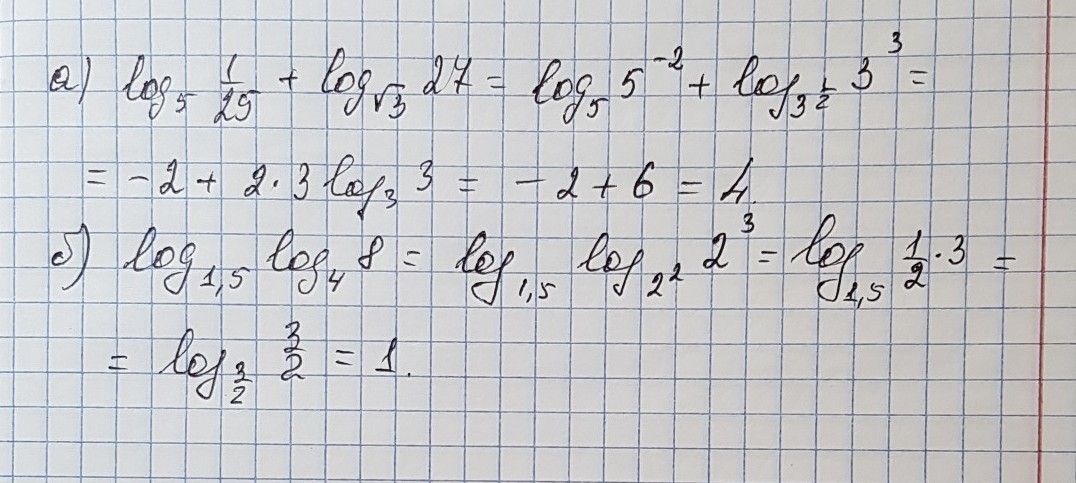 а) log₅ 1/25 + log_√3 27 = log₅ 5⁻² + log_3^(1/2) 3³ =
= -2 + 2·3 log₃ 3 = -2 + 6 = 4.
б) log₁,₅ log₄ 8 = log₁,₅ log_2² 2³ = log₁,₅ 1/2 · 3 =
= log_3/2 3/2 = 1.